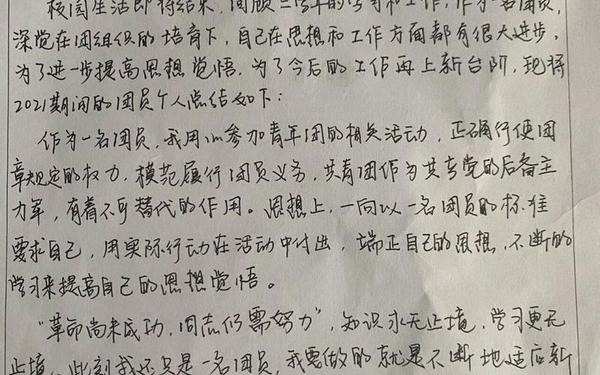 校园生活即将结束，回顾三学年的学习和工作，作为一名团员，
深觉在团组织的培育下，自己在思想和工作方面都有很大进步，
为了进一步提高思想觉悟，为了今后的工作再上新台阶，现将
2021期间的团员个人总结如下：
作为一名团员，我用心参加青年团的相关活动，正确行使团
章规定的权力，模范履行团员义务，共青团作为共产党的后备主
力军，有着不可替代的作用。思想上，一向以一名团员的标准
要求自己，用实际行动在活动中付出，端正自己的思想，不断的
学习来提高自己的思想觉悟。
“革命尚未成功，同志仍需努力”，知识永无止境，学习更无
止境，此刻我还只是一名团员，我要做的就是不断地适应新